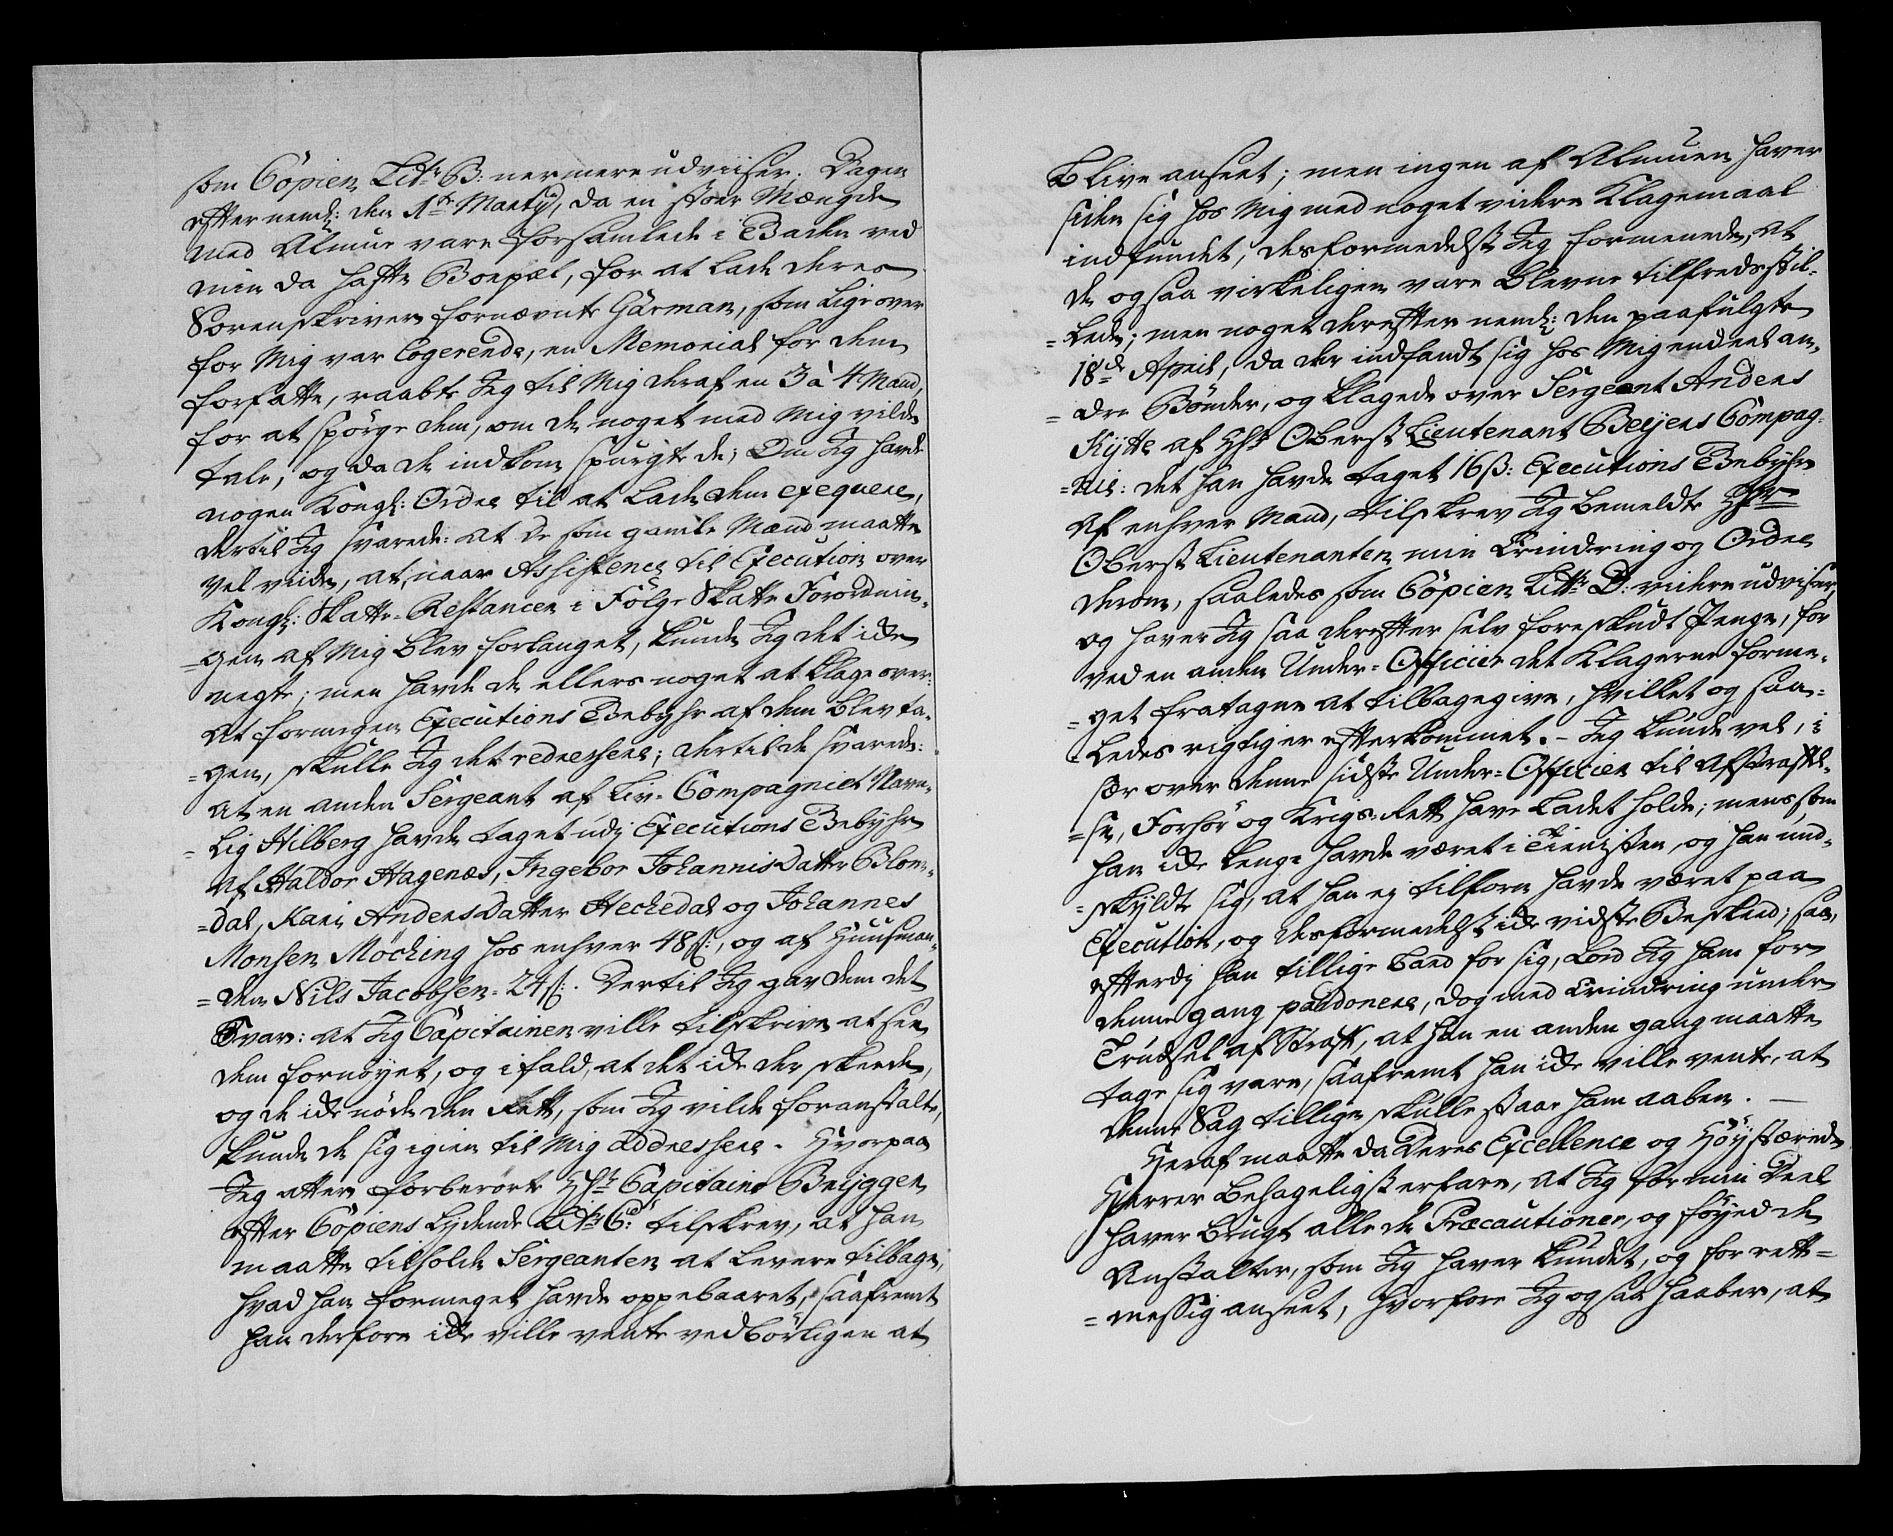 som Copien Litr: B: nermere udviiser. Dagen
efter neml: den 1te Marty, da en stoer Mængde
med Almue vare forsamlede i Baden ved
min da hafte Boepæl, for at lade deres
Sorenskriver fornævnte Garman, som lige over
for Mig var logerende, en Memorial for dem
forfatte, raabte Jeg til Mig deraf en 3 à 4 Mand,
for at spörge dem, om de noget med Mig vilde
tale, og da de indkom spurgte de; Om Jeg havde
nogen Kongl: Ordre til at lade dem exeqvere,
dertil Jeg svarede: at de som gamle Mænd maatte
vel viide, at naar Assistence til Execution over
Kongl: Skatte-Restancer i Fölge Skatte Forordnin-
=gen af Mig blev forlanget, kunde Jeg det icke
negte; men havde de ellers noget at klage over:
at formegen Executions Gebyhr af dem blev ta-
=gen, skulle Jeg det redressere; dertil de svarede:
at en anden Sergeant af Liv-Compagniet Navn-
=lig Hilberg havde taget udj Executions Gebyhr
af Haldor Hagenæs, Ingebor Johannis Datter Blom-
=dal, Kari Anders Datter Hechedal og Johannes
Monsen Möcking hos enhver 48 s:, og af Huusman-
=den Nils Jacobsen-24 s:. Dertil Jeg gav dem det
Svar: at Jeg Capitainen ville tilskrive at see
dem fornöyet, og ifald, at det icke der skeede,
og de icke nöde den Rett, som Jeg vilde foranstalte,
kunde de sig igien til Mig addressere. Hvorpaa
Jeg atter forberörte Hr: Capitaine Brügger
efter Copiens lydende Litr: C: tilskrev, at han
maatte tilholde Sergeanten at levere tilbage,
hvad han formeget havde oppebaaret, saafremt
han derfore icke ville vente vedbörligen at
blive anseet; men ingen af Almuen haver
siden sig hos Mig med noget videre Klagemaal
indfundet, desformedelst Jeg formeenede, at
de ogsaa virkeligen vare blevne tilfredsstil-
=lede; men noget derefter neml: den paafulgte
18de April, da der indfandt sig hos Mig endeel an-
=dre Bönder, og klagede over Sergeant Anders
Kytte af Hr Oberst Lieutenant Beyers Compag-
=nie: det han havde taget 16 ß: Executions Gebyhr
af enhver Mand, tilskrev Jeg bemeldte Hr
Oberst Lieutenanten min Erindring og Ordre
derom, saaledes som Copien Litr: D: videre udviser,
og haver Jeg saa derefter selv foreskudt Penge, for
ved en anden Under-Officier det Klagerne forme-
=get fratagne at tilbagegive, hvilket og saa-
=ledes rigtig er efterkommet. - Jeg kunde vel, i
sær over denne sidste Under-Officier til Afstraffel-
=se, Forhör og Krigs-Rett have ladet holde; mens, som
han icke lenge havde været i Tienisten, og han und-
=skyldte sig, at han ej tilforn havde været paa
Execution, og desformedelst icke vidste Beskeed; saa,
efterdj han tillige bad for sig, lod Jeg ham for
denne gang pardonere, dog med Erindring under
Trudsel af Straff, at han en anden gang maatte
tage sig vare, saafremt han icke ville vente, at
denne Sag tilligen skulle staae ham aaben. -
Heraf maatte da Deres Excellence og Höystærede
Herrer behageligst erfare, at Jeg for min Deel
haver brugt alle de Præcautioner, og föyed de
Anstalter, som Jeg haver kundet, og for rett-
=messig anseet, hvorfore Jeg og saa haaber, at